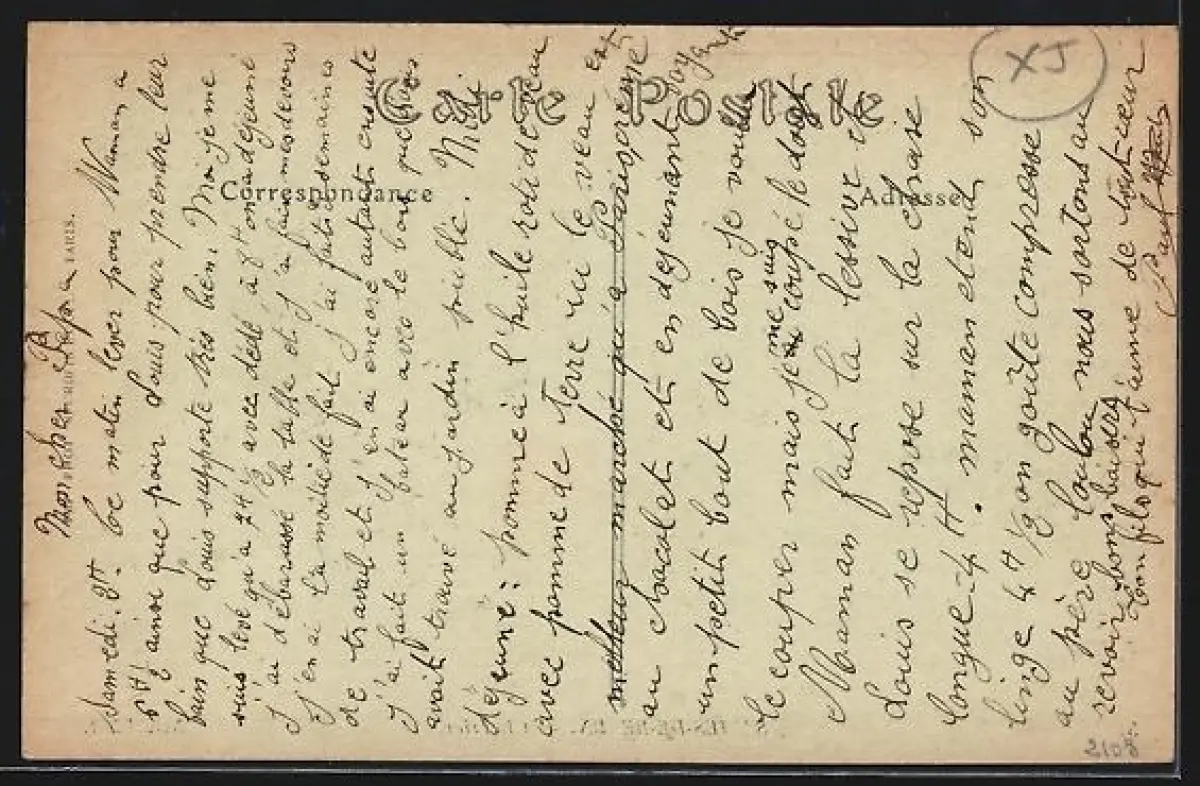 Carte Postale
Correspondance
Adresse
PARIS.
XJ
Mon cher Papa
Samedi. 9H. Ce matin lever pour Maman à
6H ½ ainsi que pour Louis pour prendre leur
bain que Louis supporte très bien. Moi je me
suis levé qu'à 7H ½ avec dédé à 8H on a déjeuné
J'ai débarassé la table et j'ai fait mes devoirs
J'en ai la moitié de fait j'ai fait 2 semaines
de travail et j'en ai encore autant ensuite
J'ai fait un bateau avec le bois que
avait trouvé au jardin public. Midi
déjeuné: pomme à l'huile roti de veau
avec pomme de terre ici le veau est
meilleur marché qu'à Paris
au chocolat et en déjeunant
un petit bout de bois je voulu
le couper mais je me suis coupé le doigt
Maman fait la lessive et
Louis se repose sur la chaise
longue. 4H. maman étend son
linge 4H ½ on goûte compresse
au père Loulou nous sortons au
revoir bons baisers
ton fils qui t'aime de tout cœur
Paul
2108